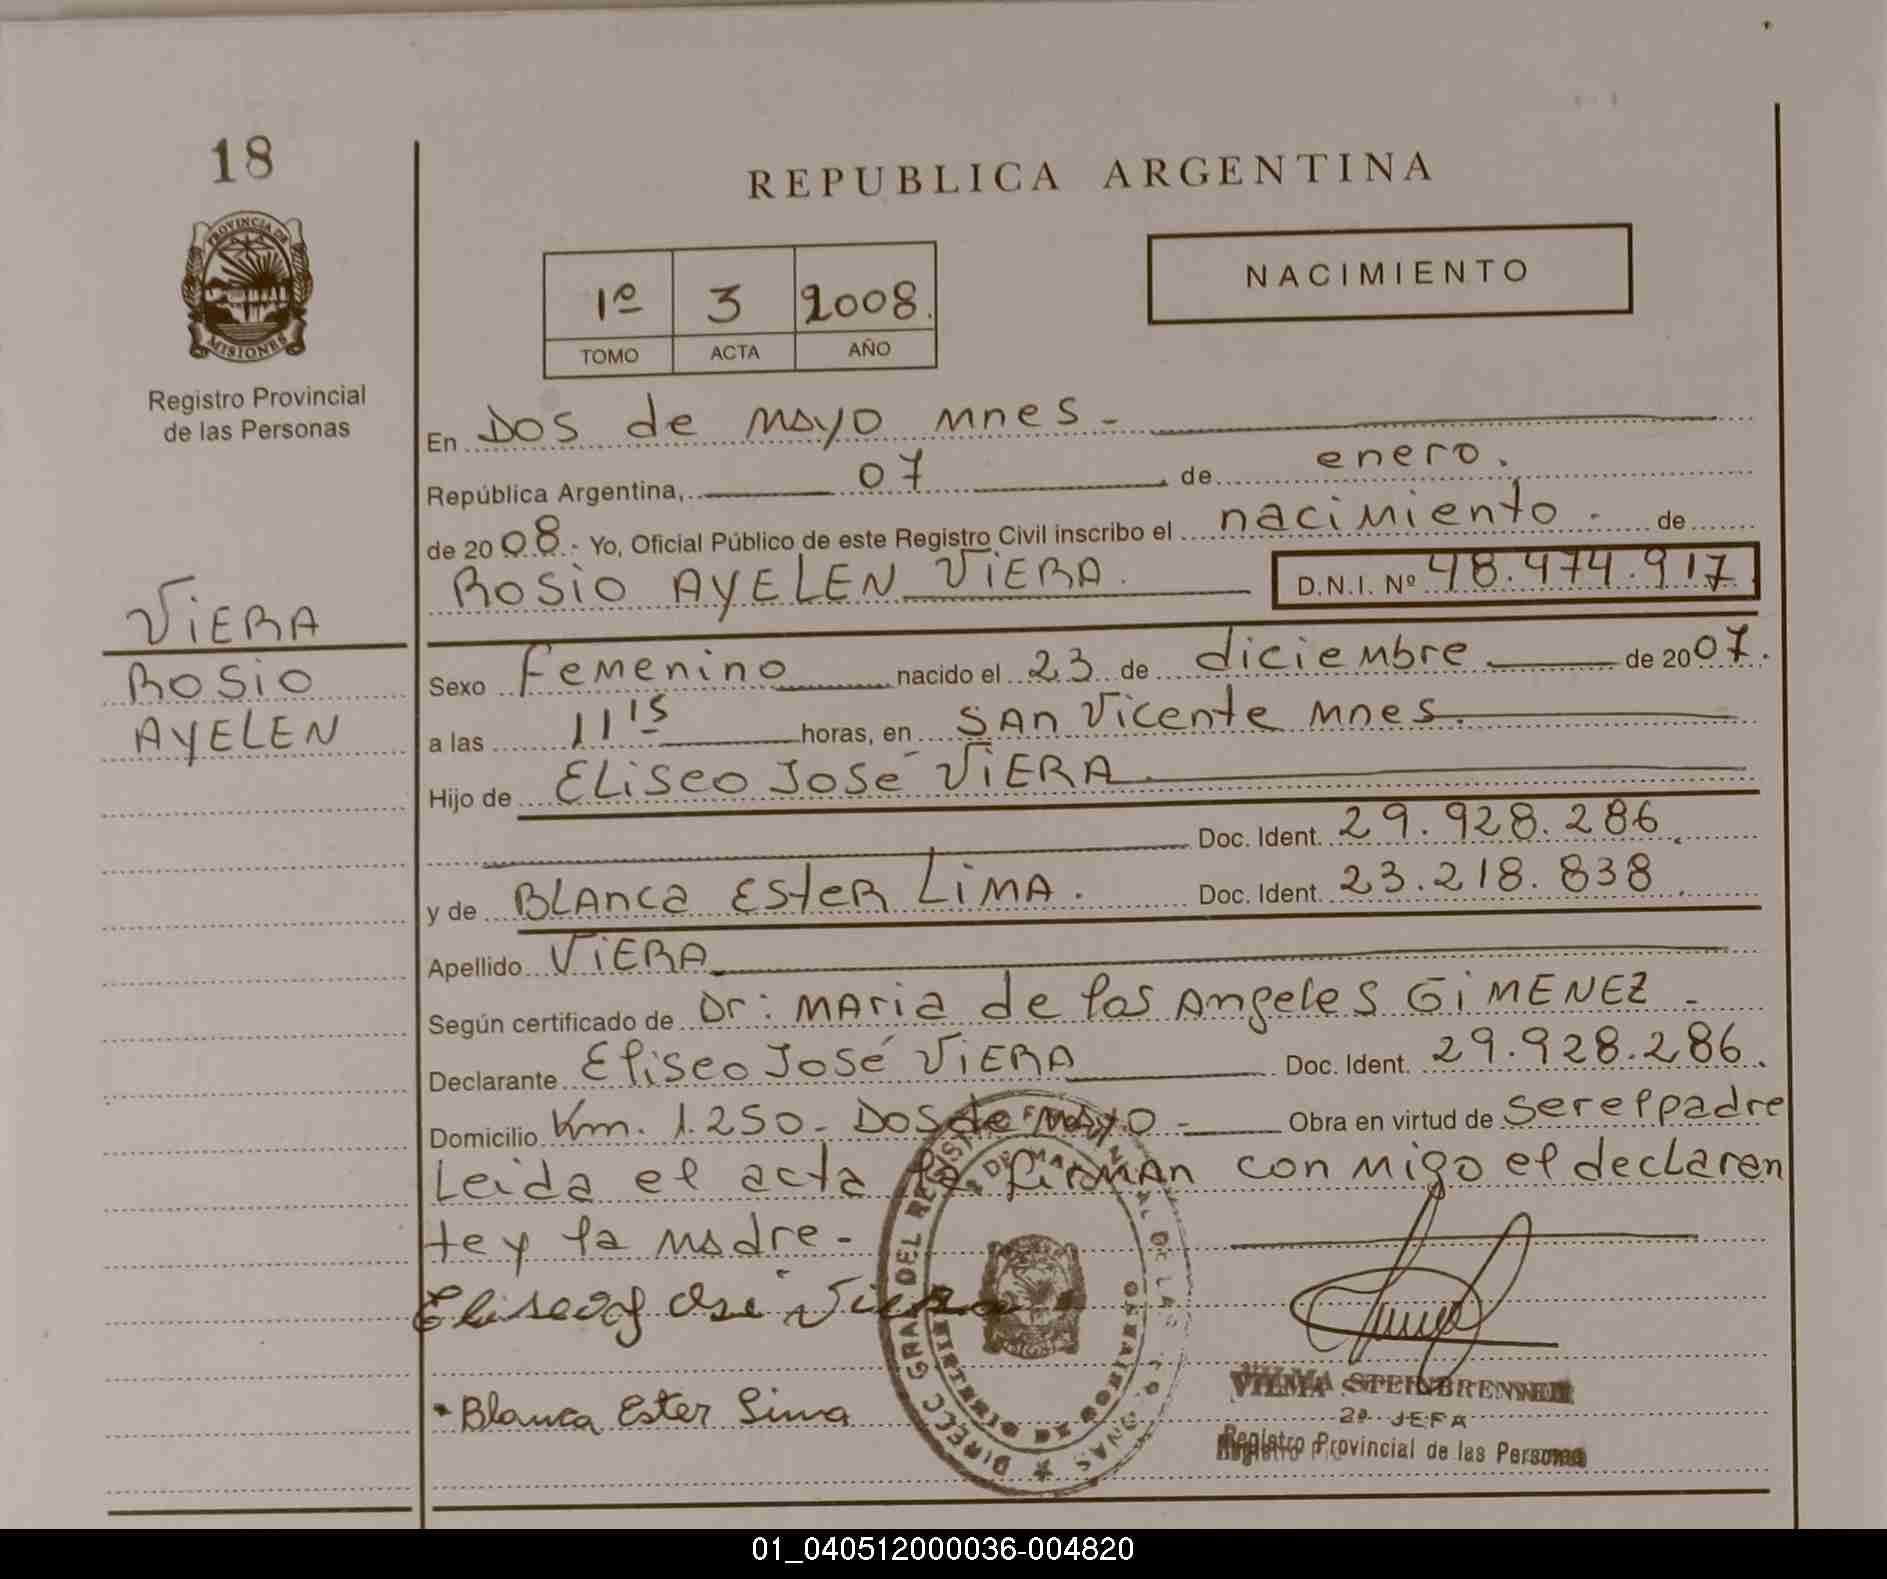 18
PROVINCIA DE
MISIONES
Registro Provincial
de las Personas
VIERA
ROSIO
AYELEN
REPUBLICA ARGENTINA
1º 3 2008.
TOMO ACTA AÑO
NACIMIENTO
En Dos de mayo mnes -
República Argentina, 07 de enero.
de 2008. Yo, Oficial Público de este Registro Civil inscribo el nacimiento - de
ROSIO AYELEN VIERA. D.N.I. Nº 48.474.917
Sexo Femenino nacido el 23 de diciembre de 2007.
a las 11 15 horas, en SAn Vicente mnes.
Hijo de ELiseo José ViERA.
Doc. Ident. 29.928.286.
y de BLAnca EsteR LiMA. Doc. Ident. 23.218.838.
Apellido ViERA
Según certificado de Dr: MAria de los Angeles GiMENEZ -
Declarante Eliseo José ViERA Doc. Ident. 29.928.286.
Domicilio Km. 1.250 - Dos de MAyo - Obra en virtud de ser el padre
Leida el acta la firMAn con migo el declaran
te y la madre -
Eliseo José Viera
Blanca Ester Lima
VILMA STEINBRENNER
2ª JEFA
Registro Provincial de las Personas
01_040512000036-004820